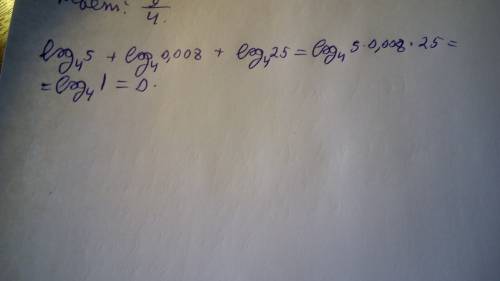 Ответ: /4.
log₄5 + log₄0,008 + log₄25 = log₄5·0,008·25 =
= log₄1 = 0.